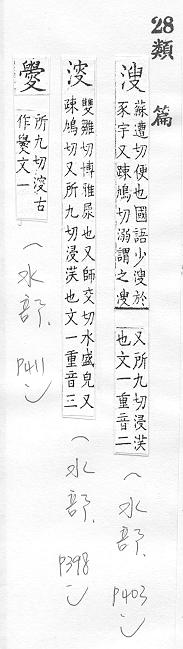 28類篇
溲
蘇遭切便也國語少溲於
豕宇又疎鳩切溺謂之溲
又所九切浸沃
也文一重音二
(水部. P403)
雙雛切博雅尿也又師交切水盛皃又
疎鳩切又所九切浸沃也文一重音三
(水部. P398)
所九切 古
作 文一
(水部. P411)